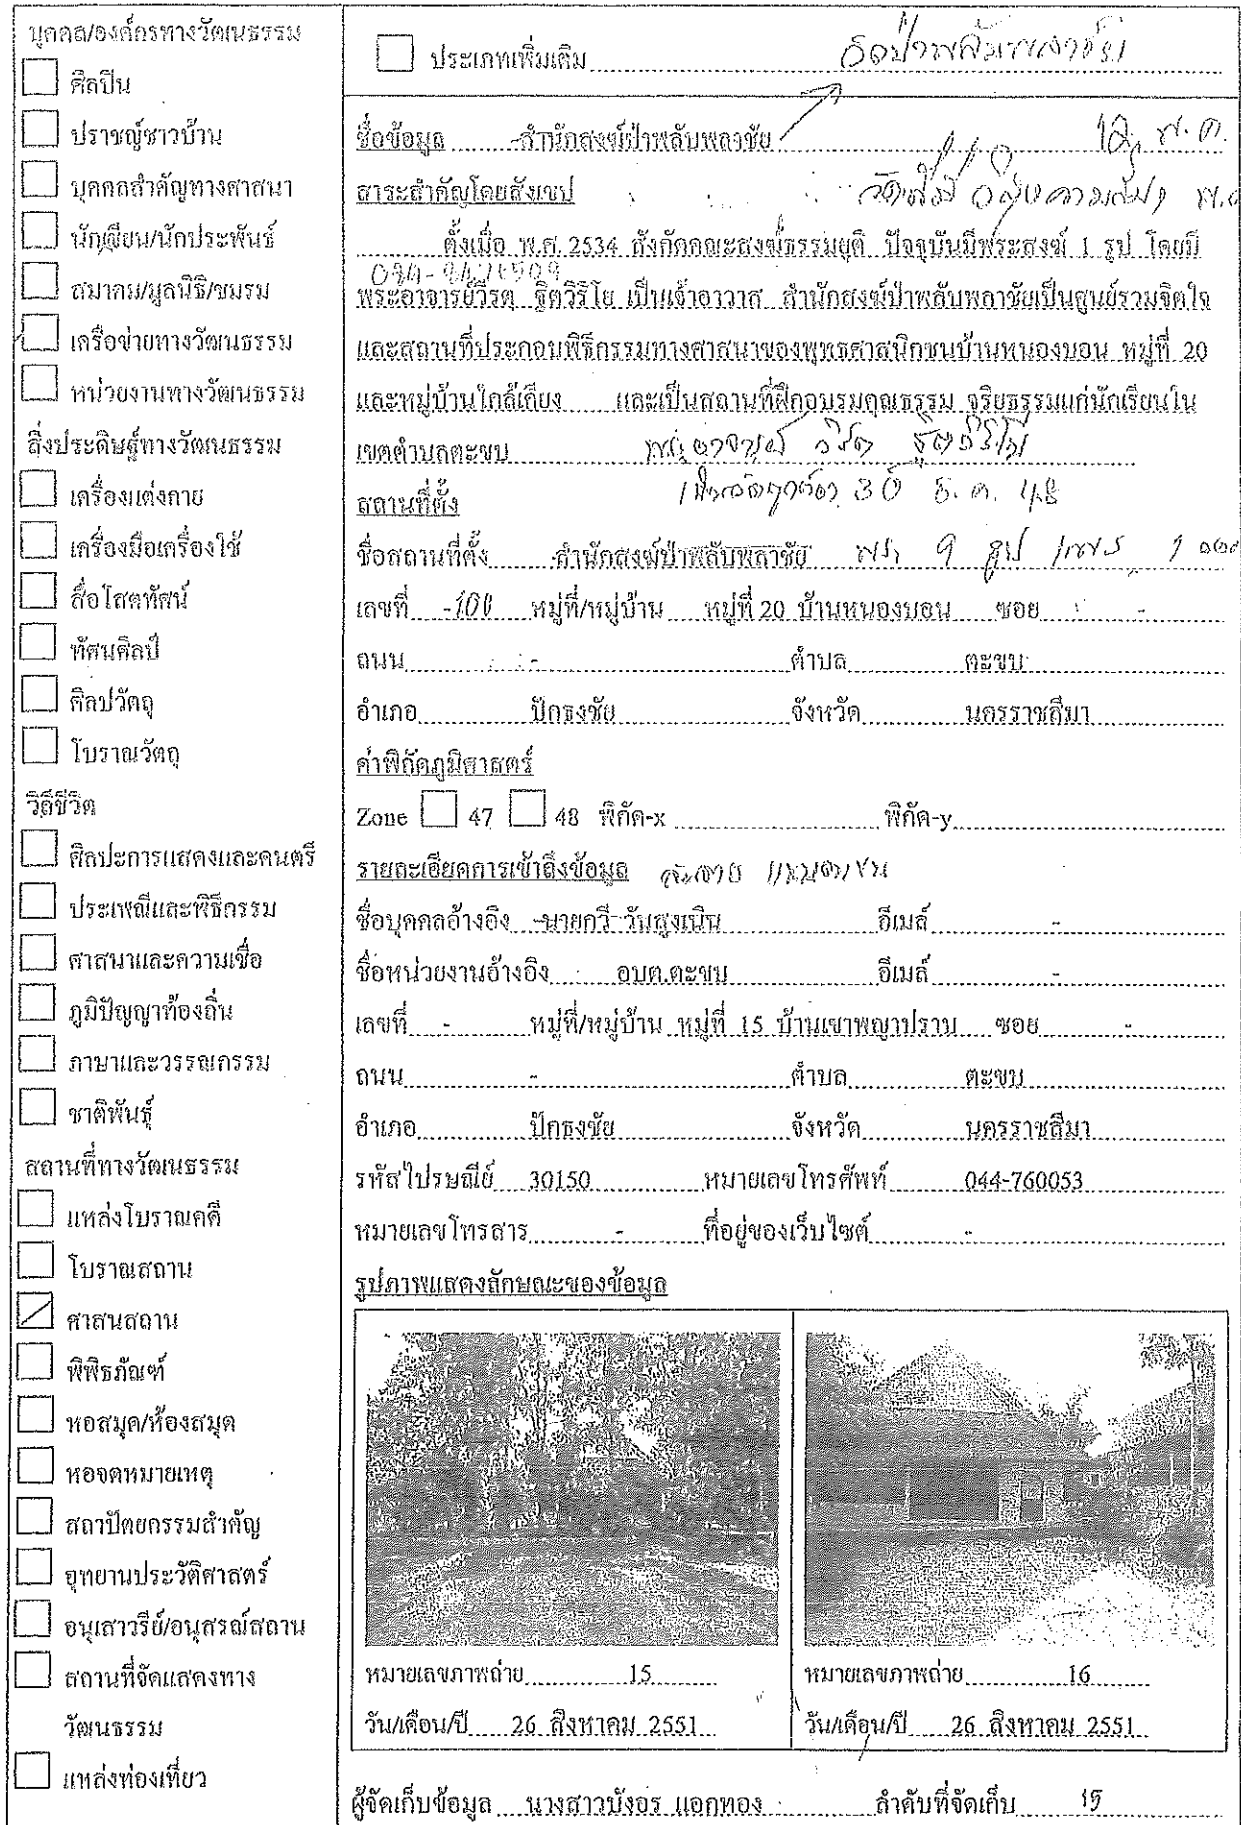 บุคคล/องค์กรทางวัฒนธรรม
ศิลปิน
ปราชญ์ชาวบ้าน
บุคคลสำคัญทางศาสนา
นักเขียน/นักประพันธ์
สมาคม/มูลนิธิ/ชมรม
เครือข่ายทางวัฒนธรรม
หน่วยงานทางวัฒนธรรม
สิ่งประดิษฐ์ทางวัฒนธรรม
เครื่องแต่งกาย
เครื่องมือเครื่องใช้
สื่อโสตทัศน์
ทัศนศิลป์
ศิลปวัตถุ
โบราณวัตถุ
วิถีชีวิต
ศิลปะการแสดงและดนตรี
ประเพณีและพิธีกรรม
ศาสนาและความเชื่อ
ภูมิปัญญาท้องถิ่น
ภาษาและวรรณกรรม
ชาติพันธุ์
สถานที่ทางวัฒนธรรม
แหล่งโบราณคดี
โบราณสถาน
ศาสนสถาน
พิพิธภัณฑ์
หอสมุด/ห้องสมุด
หอจดหมายเหตุ
สถาปัตยกรรมสำคัญ
อุทยานประวัติศาสตร์
อนุเสาวรีย์/อนุสรณ์สถาน
สถานที่จัดแสดงทาง
วัฒนธรรม
แหล่งท่องเที่ยว
ประเภทเพิ่มเติม วัดป่าพลับพลาชัย
ชื่อข้อมูล -สำนักสงฆ์ป่าพลับพลาชัย
สาระสำคัญโดยสังเขป
ตั้งเมื่อ พ.ศ. 2534 สังกัดคณะสงฆ์ธรรมยุติ ปัจจุบันมีพระสงฆ์ 1 รูป โดยมี
พระอาจารย์วีรต ฐิตวิริโย เป็นเจ้าอาวาส สำนักสงฆ์ป่าพลับพลาชัยเป็นศูนย์รวมจิตใจ
และสถานที่ประกอบพิธีกรรมทางศาสนาของพุทธศาสนิกชนบ้านหนองบอน หมู่ที่ 20
และหมู่บ้านใกล้เคียง และเป็นสถานที่ฝึกอบรมคุณธรรม จริยธรรมแก่นักเรียนใน
เขตตำบลตะขบ
30 ธ.ค. 48
สถานที่ตั้ง
ชื่อสถานที่ตั้ง -สำนักสงฆ์ป่าพลับพลาชัย พระ 9 รูป เณร 1
เลขที่ -100 หมู่ที่/หมู่บ้าน หมู่ที่ 20 บ้านหนองบอน ซอย -
ถนน - ตำบล ตะขบ
อำเภอ ปักธงชัย จังหวัด นครราชสีมา
ค่าพิกัดภูมิศาสตร์
Zone 47 48 พิกัด-x พิกัด-y
รายละเอียดการเข้าถึงข้อมูล
ชื่อบุคคลอ้างอิง -นายกวี วันสูงเนิน อีเมล์ -
ชื่อหน่วยงานอ้างอิง อบต.ตะขบ อีเมล์ -
เลขที่ - หมู่ที่/หมู่บ้าน หมู่ที่ 15 บ้านเขาพญาปราบ ซอย -
ถนน - ตำบล ตะขบ
อำเภอ ปักธงชัย จังหวัด นครราชสีมา
รหัสไปรษณีย์ 30150 หมายเลขโทรศัพท์ 044-760053
หมายเลขโทรสาร - ที่อยู่ของเว็บไซต์ -
รูปภาพแสดงลักษณะของข้อมูล
หมายเลขภาพถ่าย 15
วัน/เดือน/ปี 26 สิงหาคม 2551
หมายเลขภาพถ่าย 16
วัน/เดือน/ปี 26 สิงหาคม 2551
ผู้จัดเก็บข้อมูล นางสาวบังอร แอกทอง ลำดับที่จัดเก็บ 15